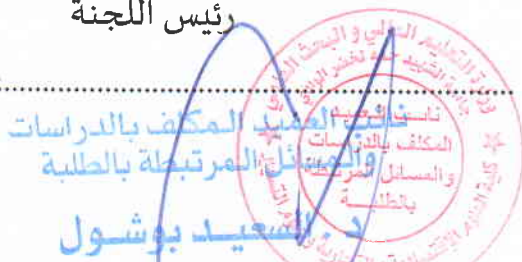 رئيس اللجنة
نائب العميد المكلف بالدراسات
والمسائل المرتبطة بالطلبة
د. السعيد بوشول
وزارة التعليم العالي و البحث العلمي
جامعة الشهيد حمه لخضر الوادي
نائب العميد
المكلف بالدراسات
والمسائل المرتبطة
بالطلبة
كلية العلوم الاقتصادية